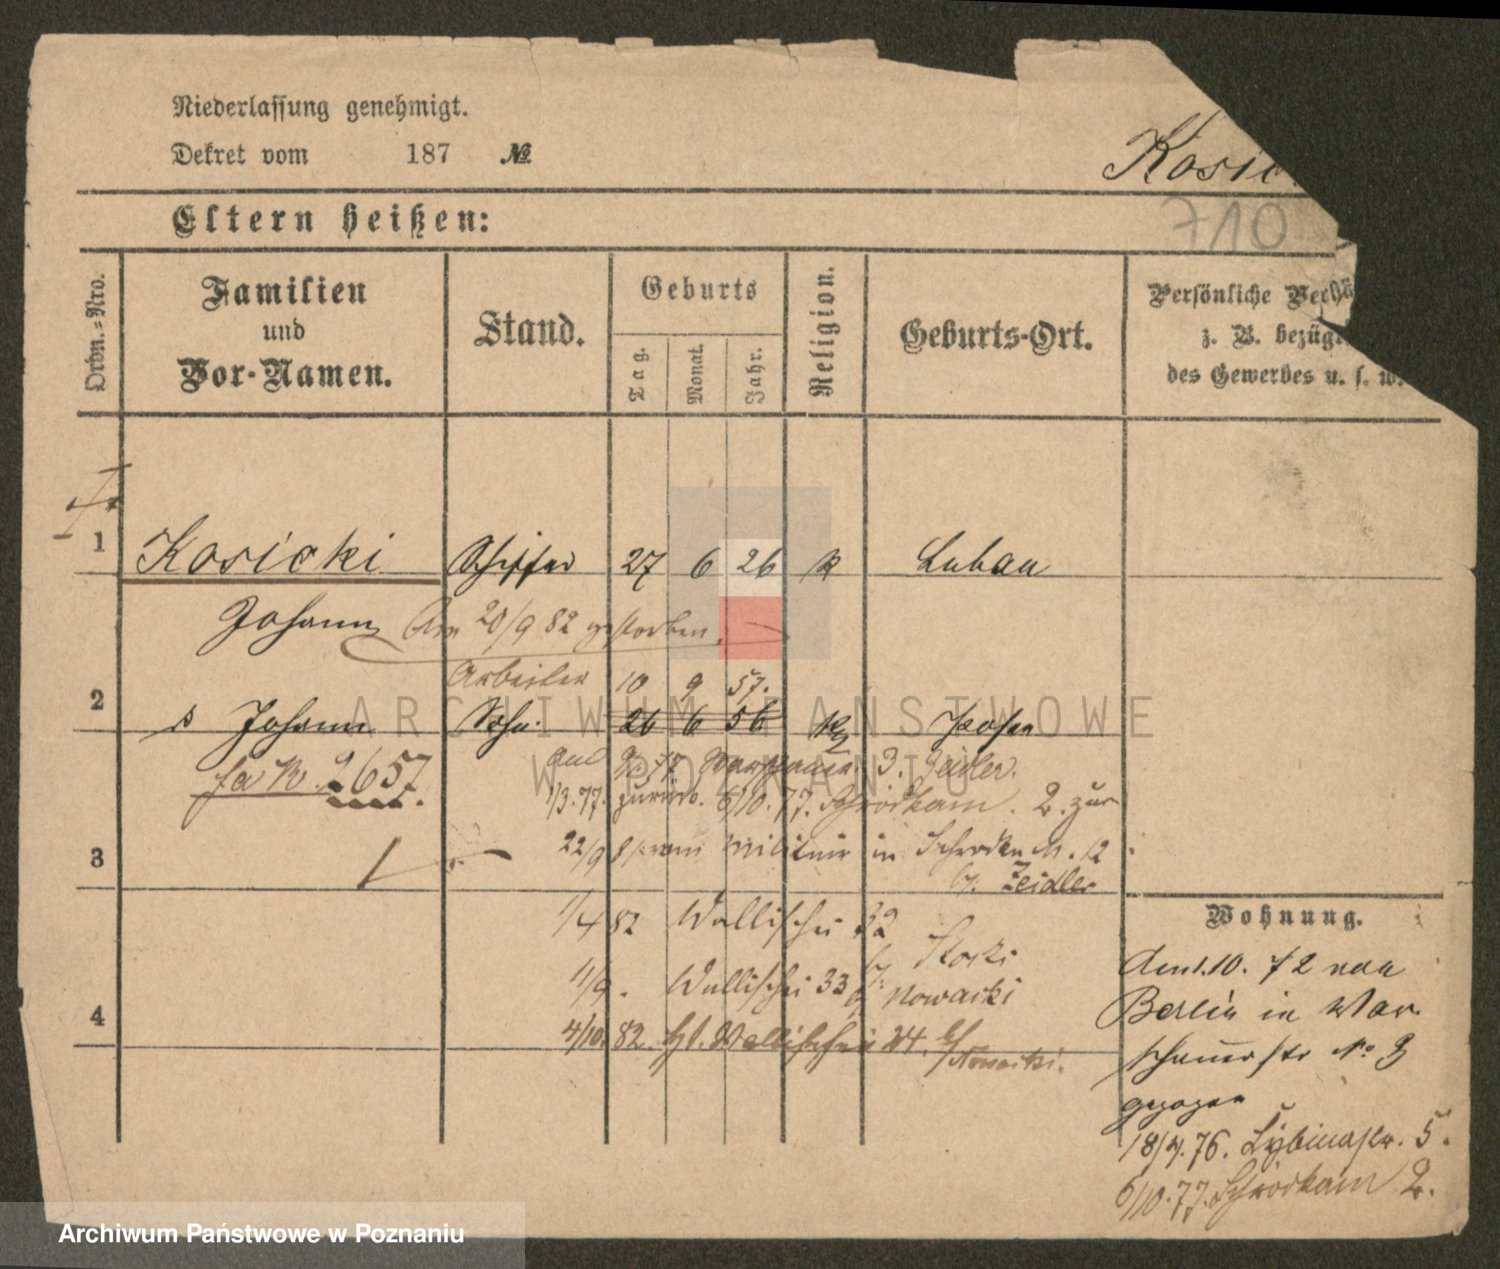 Niederlassung genehmigt.
Dekret vom 187 №
Kosic
710
Eltern heißen:
Ordn.=Nro.
Familien
und
Vor-Namen.
Stand.
Geburts
Tag.
Monat.
Jahr.
Religion.
Geburts-Ort.
Persönliche Verhä
z. B. bezügl
des Gewerbes u. s. w.
1 Kosicki Schiffer 27 6 26 k Luban
Johann Am 20/9 82 gestorben.
Arbeiter 10 9 57.
2 s Johann Sohn 26 6 56 k Posen
fa K. 2657.
3. Zeidler.
1/3. 77. zurück. 6/10. 77. Schrodkam. 2. zur
3 22/9 8 vom Militair in Schrodka M. 12
b/. Zeidler
Wohnung.
1/4 82 Wallischei 32
b/. Storki
1/9. Wallischei 33 b/ Nowacki
4 4/10. 82. Wallischei 24. b/ Nowacki.
Am 1. 10. 72 von
Berlin in War
schauerstr No 3
gezogen
18/4. 76. Zybinastr. 5.
6/10. 77. Schrodkam 2.
ARCHIWUM PAŃSTWOWE
W POZNANIU
Archiwum Państwowe w Poznaniu